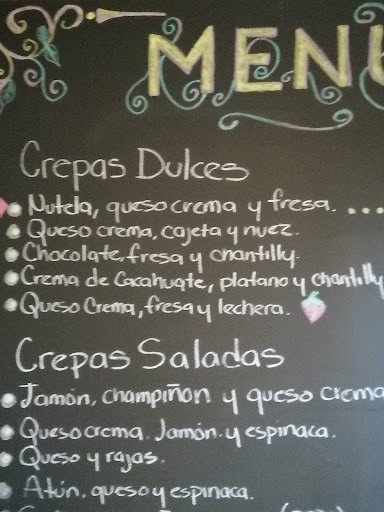 MENU
Crepas Dulces
Nutela, queso crema y fresa. ...
Queso crema, cajeta y nuez.
Chocolate, fresa y chantilly.
Crema de Cacahuate, platano y chantilly
Queso Crema, fresa y lechera.
Crepas Saladas
Jamón, champiñon y queso crema
Queso crema. Jamón. y espinaca.
Queso y rajas.
Atún. queso y espinaca.